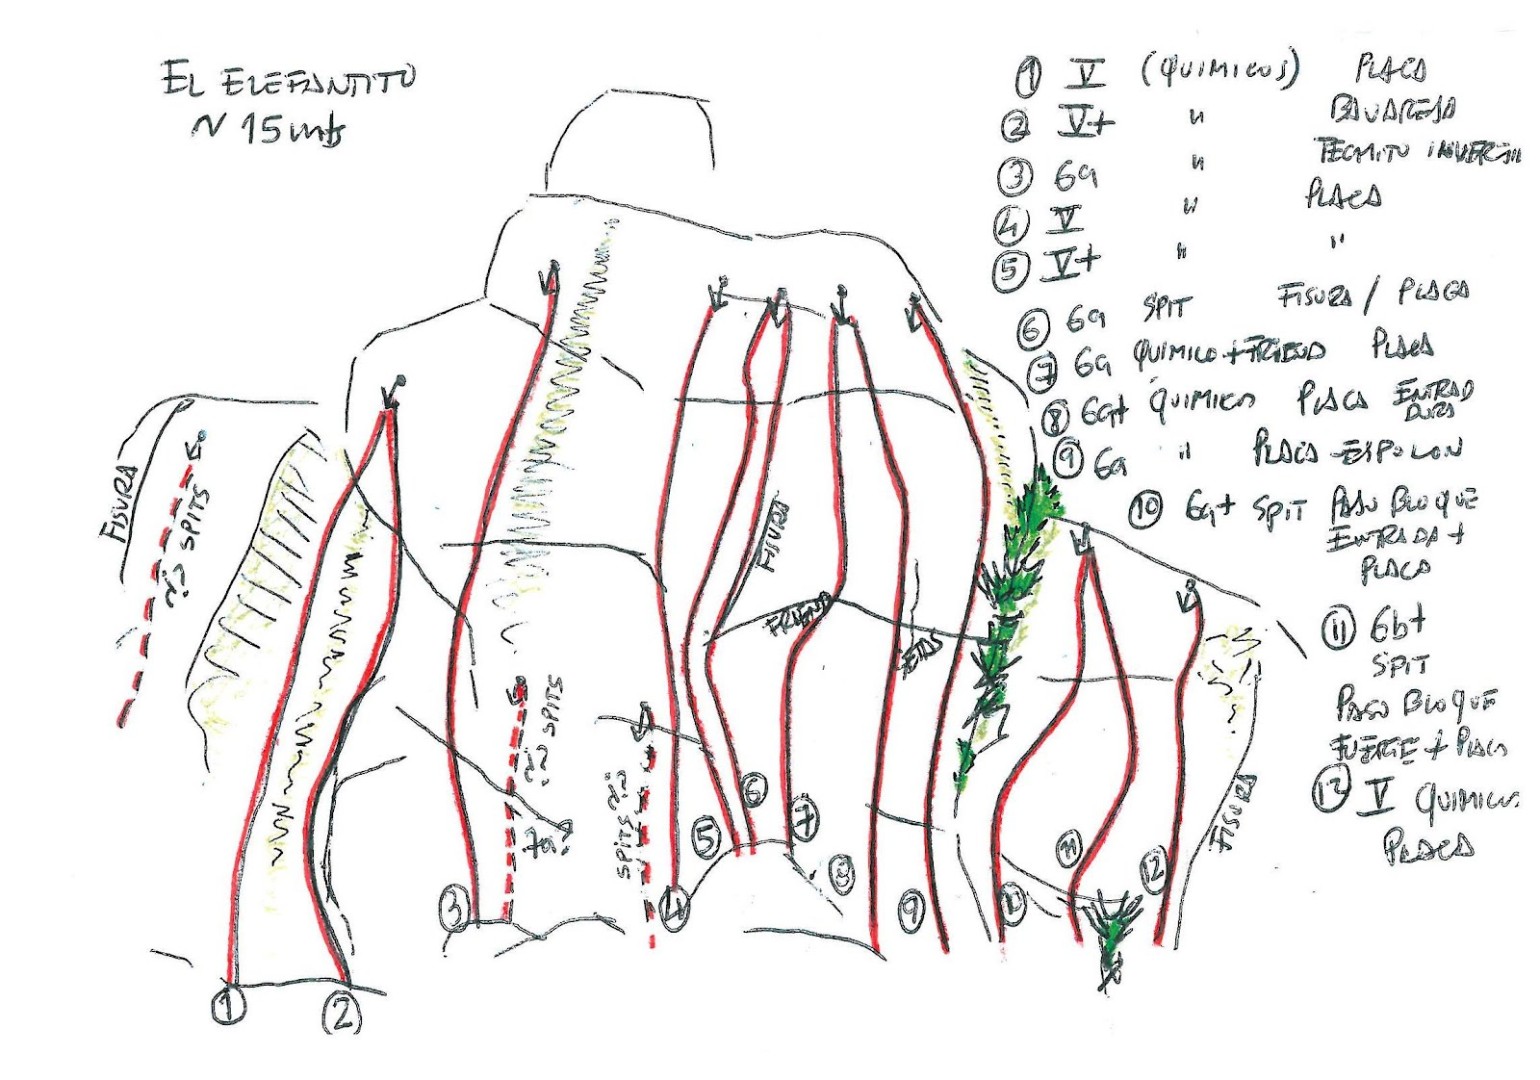 EL ELEFANTITO
~ 15 mts
① V (QUIMICOS) PLACA
② V+ " BAVARESA
③ 6a " TECHITO INVERTI
④ V " PLACA
⑤ V+ " "
⑥ 6a SPIT FISURA / PLACA
⑦ 6a QUIMICO + FRIEND PLACA
⑧ 6a+ QUIMICOS PLACA ENTRADA
DURA
⑨ 6a " PLACA - ESPOLON
⑩ 6a+ SPIT PASO BLOQUE
ENTRADA +
PLACA
⑪ 6b+
SPIT
PASO BLOQUE
FUERTE + PLACA
⑫ V QUIMICOS
PLACA
FISURA
¿? SPITS
FISURA
FRIEND
¿? SPITS
7a?
SPITS ¿?
FISURA
①
②
③
④
⑤
⑥
⑦
⑧
⑨
⑩
⑪
⑫